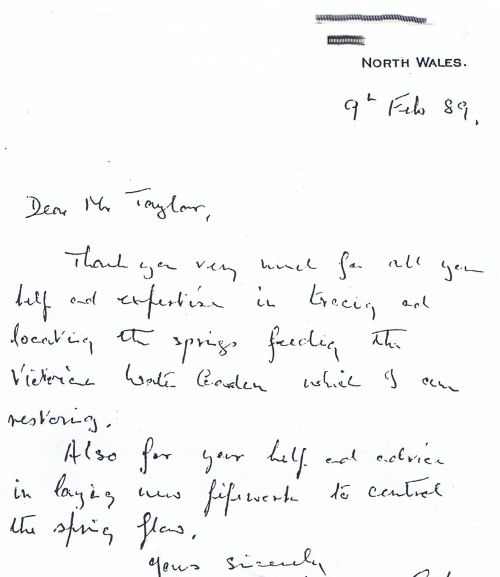 NORTH WALES.
9th Feb 89.
Dear Mr Taylor,
Thank you very much for all your
help and expertise in tracing and
locating the springs feeding the
Victorian Water Garden which I am
restoring.
Also for your help and advice
in laying new pipework to control
the spring flow.
Yours sincerely